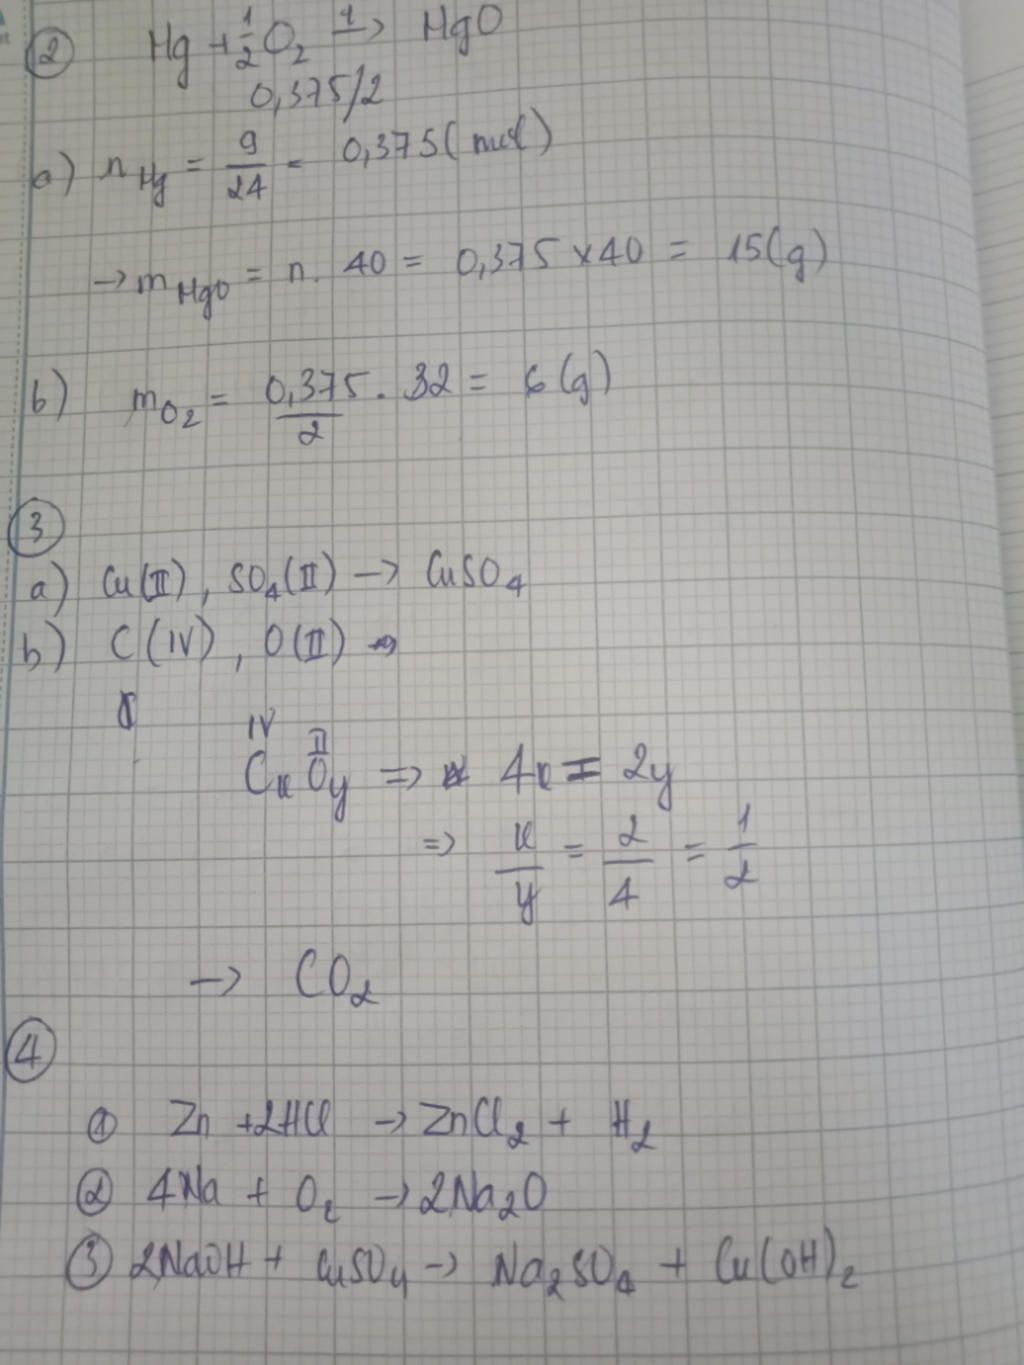 ② Hg + 1/2 O₂ → HgO
0,375/2
a) n Hg = 9/24 = 0,375 (mol)
→ m HgO = n. 40 = 0,375 x 40 = 15 (g)
b) m O₂ = 0,375/2 . 32 = 6 (g)
③
a) Cu(II), SO₄(II) → CuSO₄
b) C(IV), O(II) →
IV II
CxOy => 4x = 2y
=> x/y = 2/4 = 1/2
→ CO₂
④
① Zn + 2HCl → ZnCl₂ + H₂
② 4Na + O₂ → 2Na₂O
③ 2NaOH + CuSO₄ → Na₂SO₄ + Cu(OH)₂